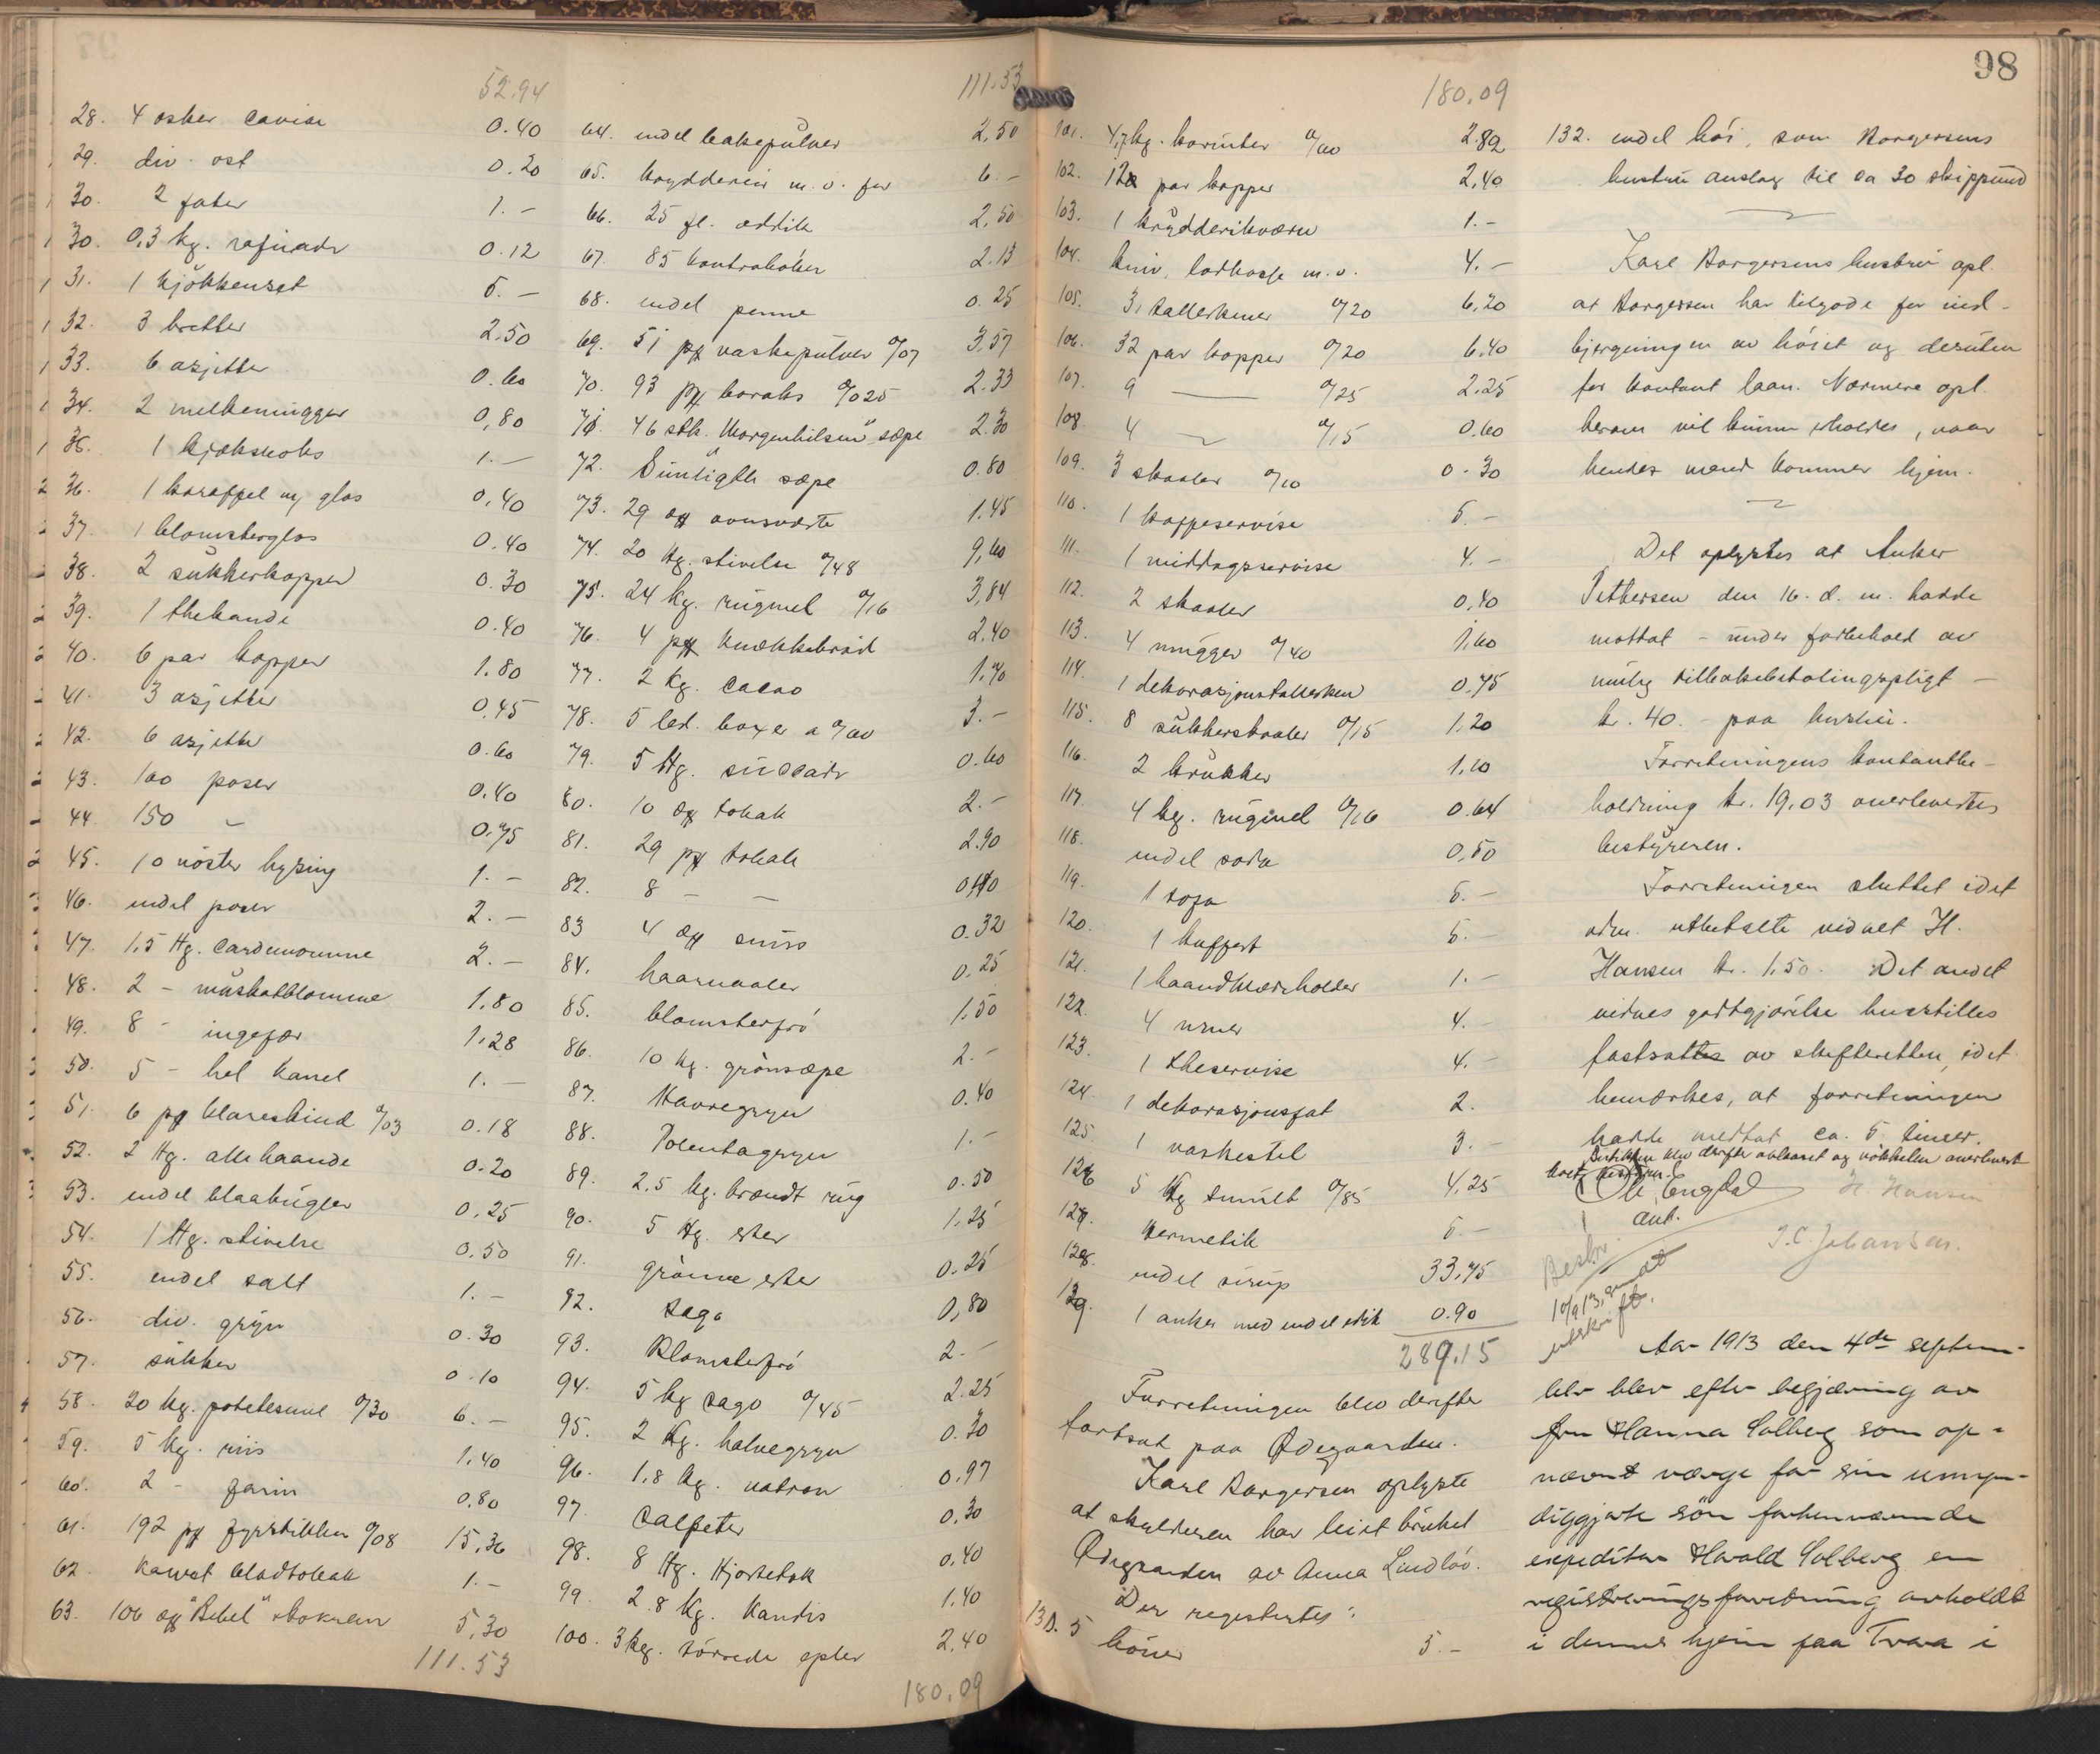 98
52.94
28. 4 æsker caviar 0.40
29. div. ost 0.20
30. 2 fater 1.-
30. 0,3 kg. rafinade 0.12
31. 1 kjökkenset 5.-
32. 3 bretter 2.50
33. 6 asjetter 0.60
34. 2 melkemugger 0,80
35. 1 kjøkskoks 1.-
36. 1 karaffel og glas 0,40
37. 1 blomsterglas 0.40
38. 2 sukkerkopper 0.30
39. 1 thekande 0.40
40. 6 par kopper 1.80
41. 3 asjetter 0,45
42. 6 asjetter 0.60
43. 100 poser 0.40
44. 150 - 0.75
45. 10 nöster hyssing 1.-
46. endel poser 2.-
47. 1,5 Hg. cardemomme 2.-
48. 2 - muskatblomme 1,80
49. 8 - ingefær 1,28
50. 5 - hel kanel 1.-
51. 6 pk klareskind 0/03 0.18
52. 2 Hg. allehaande 0.20
53. endel blaakugler 0.25
54. 1 Hg. stivelse 0.50
55. endel salt 1.-
56. div. gryn 0.30
57. sukker 0.10
58. 20 kg. potetesmel 0/30 6.-
59. 5 kg. riis 1,40
60. 2 - farin 0.80
61. 192 pk fyrstikker 0/08 15,36
62. karvet bladtobak 1.-
63. 106 æsk "Bebel" 5,30
111.53
111.53
64. endel bakepulver 2,50
65. krydderier m.v. for 6.-
66. 25 fl. eddik 2,50
67. 85 kontrabøker 2.13
68. endel penne 0.25
69. 51 pk vaskepulver 0/07 3,57
70. 93 pk boraks 0/025 2.33
71. 46 stk. "Morgenhilsen" sæpe 2.30
72. Sunligth sæpe 0.80
73. 29 æsk ovnsværte 1.45
74. 20 kg. stivelse 0/48 9,60
75. 24 kg. rugmel 0/16 3,84
76. 4 pk knækkebröd 2.40
77. 2 kg. cacao 1.70
78. 5 led. boxer a 0/60 3.-
79. 5 Hg. succade 0.60
80. 10 æsk tobak 2.-
81. 29 pk tobak 2.90
82. 8 - -
83 4 æsk snus 0.32
84. haarnaaler 0.25
85. blomsterfrö 1.50
86. 10 kg. grönsæpe 2.-
87. Havregryn 0.40
88. Polentagryn 1.-
89. 2,5 kg. brændt rug 0.50
90. 5 Hg. erter 1.25
91. grönne erter 0.25
92. sago 0,80
93. Blomsterfrö 2.-
94. 5 kg sago 0/45 2.25
95. 2 kg. halvegryn 0.30
96. 1,8 kg. natron 0.97
97. Salpeter 0.30
98. 8 Hg. Hjortetak 0,40
99. 2.8 kg. Kandis 1.40
100. 3 kg. törrede epler 2,40
180.09
180.09
101. 4,7 kg. korinter 0/60 2.82
102. 12 par kopper 2,40
103. 1 krydderikværn 1.-
104. kniv, m.v. 4.-
105. 31 tallerkener 0/20 6,20
106. 32 par kopper 0/20 6.40
107. 9 — 0/25 2.25
108. 4 — 0/15 0.60
109. 3 skaaler 0/10 0.30
110. 1 kaffeservise 5.-
111. 1 middagsservise 4.-
112. 2 skaaler 0,40
113. 4 mugger 0/40 1,60
114. 1 dekorasjonstallerken 0,75
115. 8 sukkerskaaler 0/15 1,20
116. 2 krukker 1,10
117. 4 kg. rugmel 0/16 0.64
118. endel soda 0,50
119. 1 sofa 5.-
120. 1 kuffert 5.-
121. 1 haandklædeholder 1.-
122. 4 urner 4.-
123. 1 theservise 4.-
124. 1 dekorasjonsfat 2.
125. 1 vaskestel 3.-
126 5 kg smult 0/85 4,25
127. Hermetik 5.-
128. endel sirup 33,75
129. 1 anker med endel edik 0.90
289.15
Forretningen blev derefter
fortsat paa Ødegaarden.
Karl Borgersen oplyste
at skyldneren har leiet bruket
Ødegaarden av Anna Lindløv.
Der registrertes:
130. 5 höner 5.-
132. endel höi, som Borgersens
hustru anslog til ca 30 skippund
Karl Borgersens hustru opl.
at Borgersen har tilgode for ind-
bjergningen av höiet og desuten
for kontant laan. Nærmere opl.
herom vil kunne erholdes, naar
hendes mand kommer hjem.
Det oplystes at Anker
Pettersen den 16. d. m. hadde
mottat - under forbehold av
mulig tilbakebetalingspligt -
kr. 40. - paa husleie.
Forretningens kontantbe-
holdning kr. 19,03 overlevertes
bestyreren.
Forretningen sluttet idet
adm. utbetalte vidnet H.
Hansen kr. 1,50. Det andet
vidnes godtgjörelse henstilles
fastsat av skifteretten, idet
bemærkes, at forretningen
hadde medtat ca. 5 timer.
Butikken blev derefter avlaaset og nökkelen overlevert
bestyr.
Ole Engdal
aut.
H Hansen
J. C. Johansen.
Beskr.
10/9 13,
utskrift.
Aar 1913 den 4de septem-
ber blev efter begjæring av
fru Hanna Solberg som op-
nævnt værge for sin umyn-
diggjorte sön forhenværende
expeditør Harald Solberg en
registreringsforretning avholdt
i dennes hjem paa Tvara i